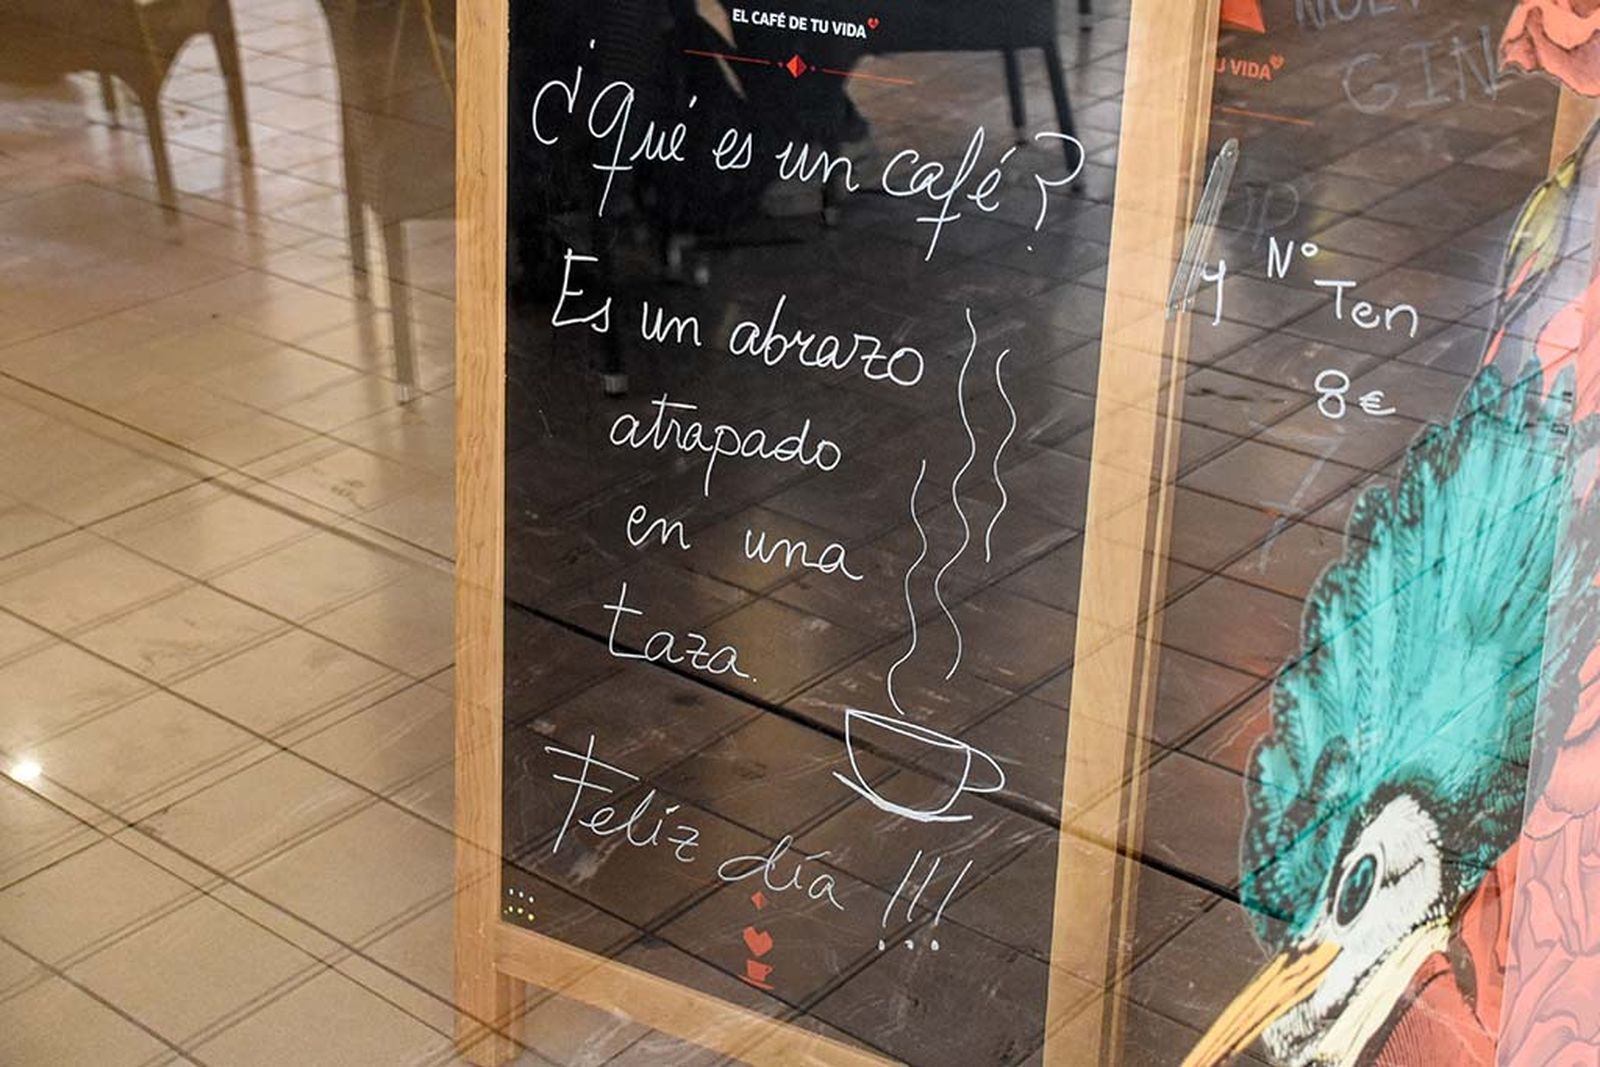 EL CAFÉ DE TU VIDA
¿Qué es un café?
Es un abrazo
atrapado
en una
taza.
Feliz día !!!
GIN
U VIDA
y Nº
Ten
8€